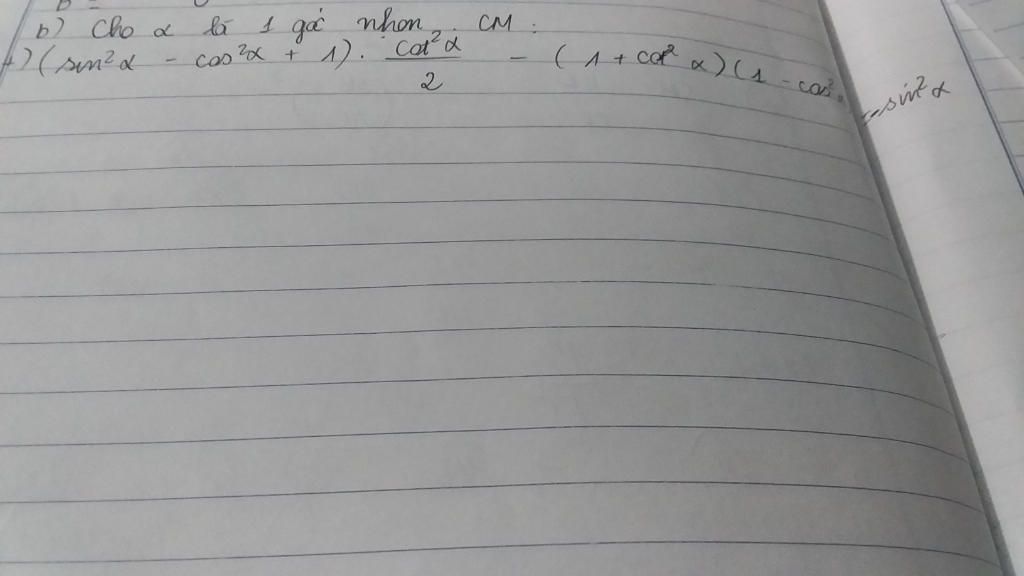 b) Cho α là 1 góc nhọn. CM:
+) (sin²α - cos²α + 1). cot²α / 2 - (1 + cot²α)(1 - cos²
sin²α